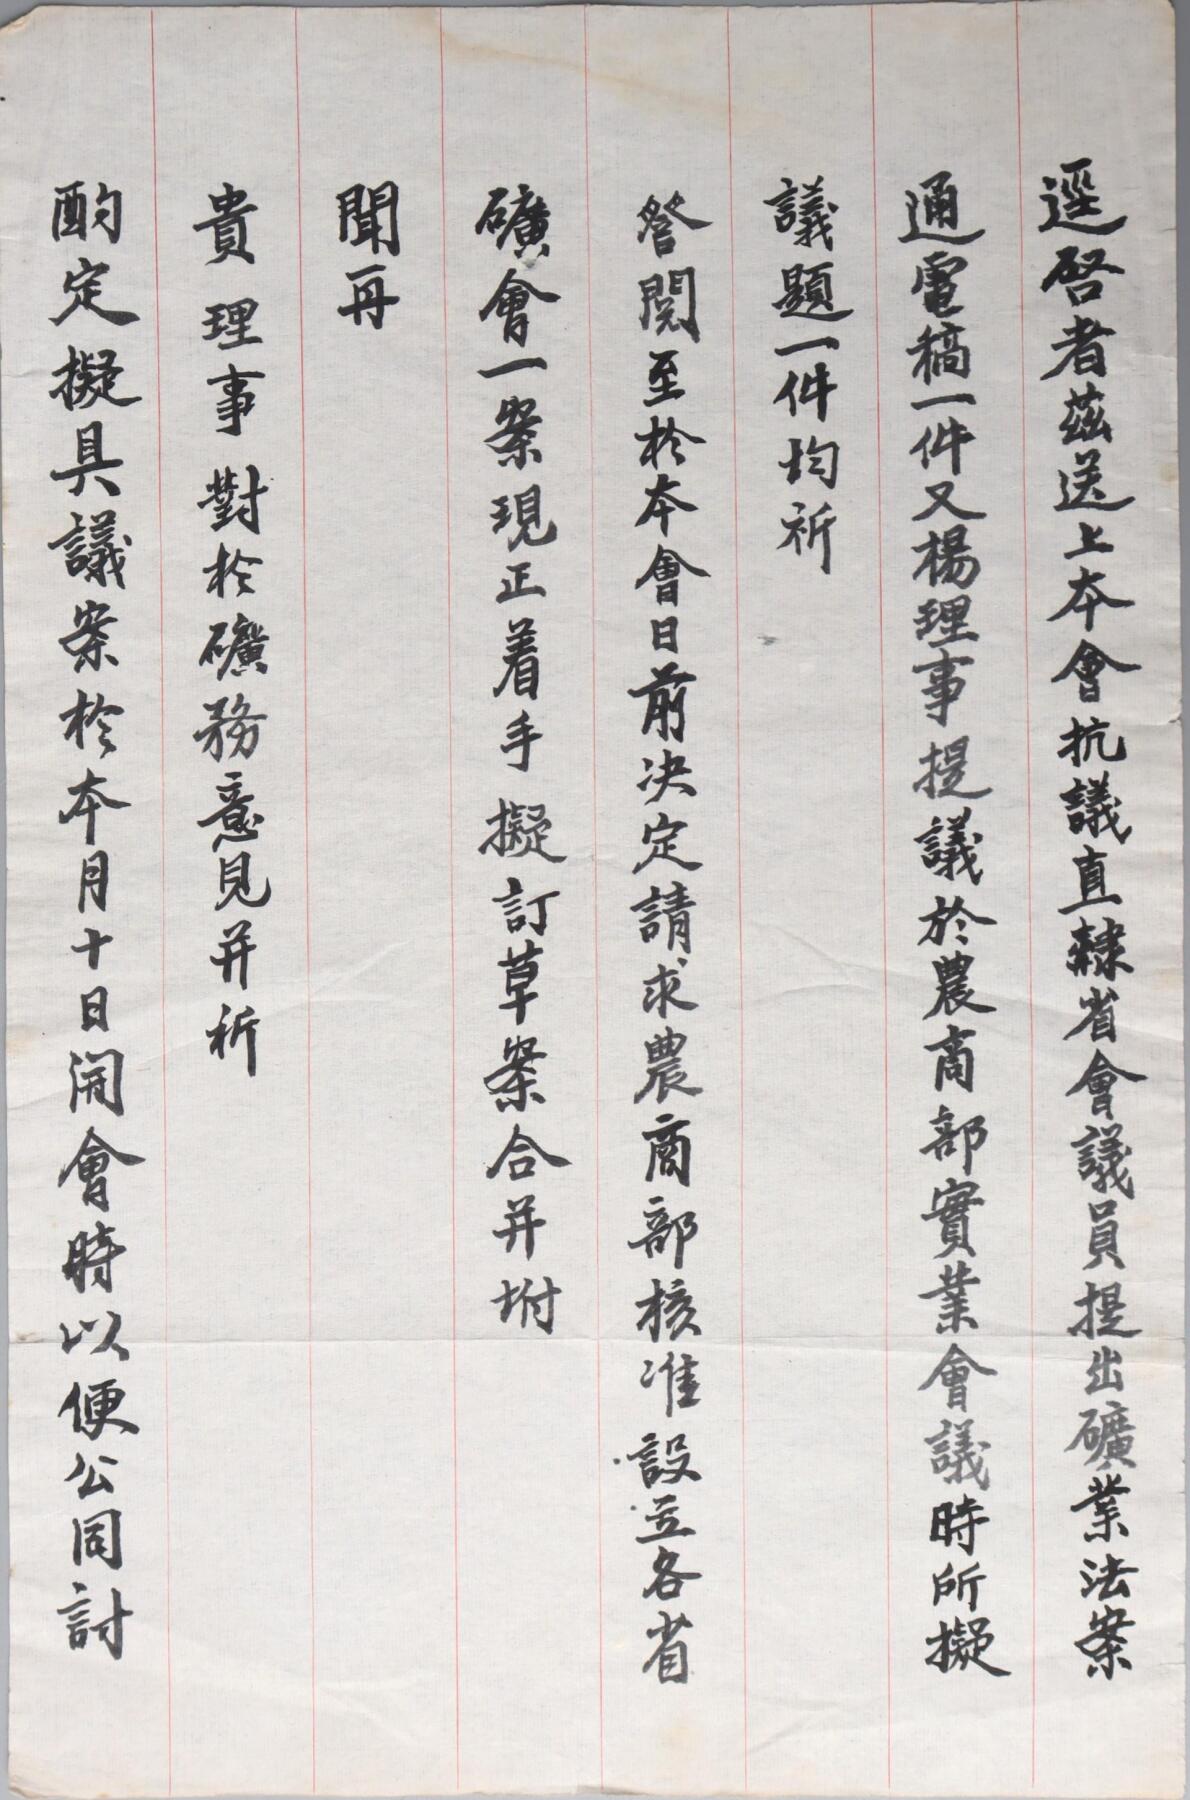 逕啓者茲送上本會抗議直隸省會議員提出礦業法案
通電稿一件又楊理事提議於農商部實業會議時所擬
議題一件均祈
詧閱至於本會日前决定請求農商部核准設立各省
礦會一案現正着手擬訂草案合并坿
聞再
貴理事對於礦務意見并祈
酌定擬具議案於本月十日開會時以便公同討